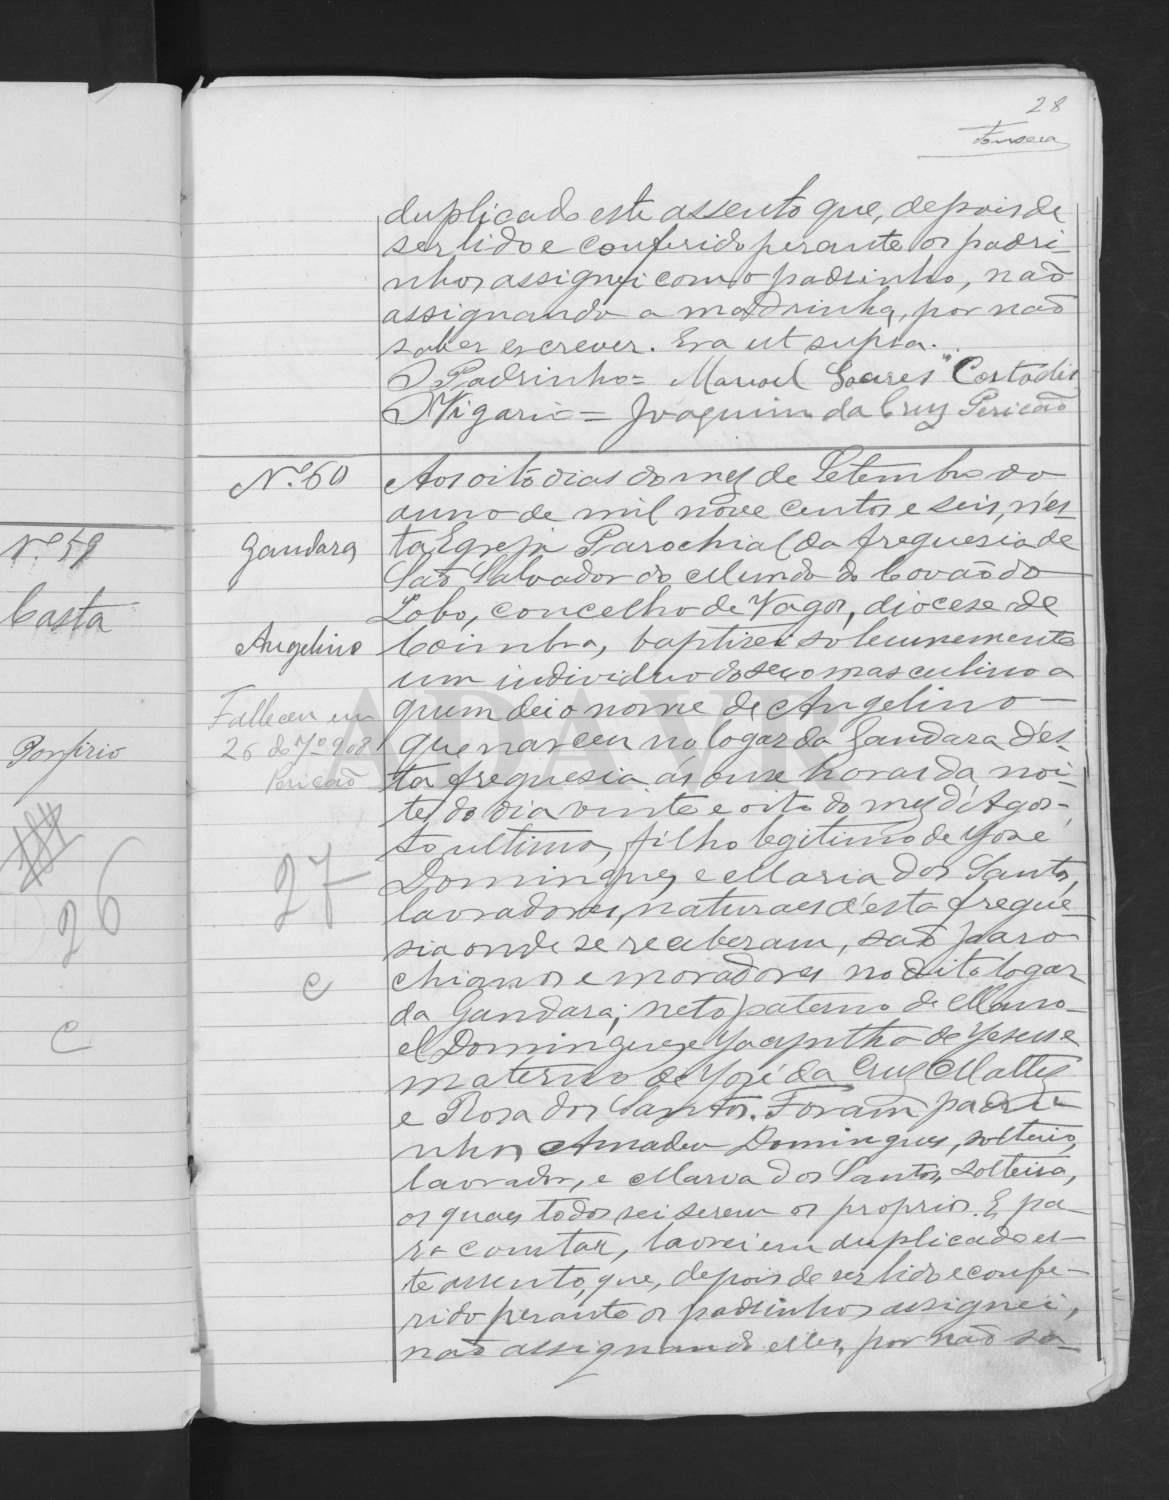 28
Fonseca
duplicado este assento que, depois de
ser lido e conferido perante os padri-
nhos assignei com o padrinho, não
assignando a madrinha, por não
saber escrever. Era ut supra.
O Padrinho = Manoel Soares Cortadis
O Vigario = Joaquim da Cruz Pericão
Nº 60
Gandara
Angelino
Falleceu em
26 de 7º 908
Pericão
27
c
Aos oito dias do mez de Setembro do
anno de mil nove centos e seis, n'es-
ta Egreja Parochial da freguesia de
São Salvador do Mundo do Covão do
Lobo, concelho de Vagos, diocese de
Coimbra, baptisei solemnemente
um individuo do sexo masculino a
quem dei o nome de Angelino
que nasceu no logar da Gandara d'es-
ta freguesia ás onze horas da noi-
te do dia vinte e oito do mez d'Agos-
to ultimo, filho legitimo de José
Domingues e Maria dos Santos,
lavradores, naturaes d'esta fregue-
sia onde se receberam, são paro-
chianos e moradores no dito logar
da Gandara; neto paterno de Mano-
el Domingues e Jacyntha de Jesus e
materno de José da Cruz Mattos
e Rosa dos Santos. Foram padri-
nhos Amadeu Domingues, solteiro,
lavrador, e Maria dos Santos, solteira,
os quaes todos sei serem os proprios. E pa-
ra constar, lavrei em duplicado es-
te assento, que, depois de ser lido e confe-
rido perante os padrinhos assignei,
não assignando elles, por não sa-
Nº 59
Costa
Porfirio
26
c
ADAVR